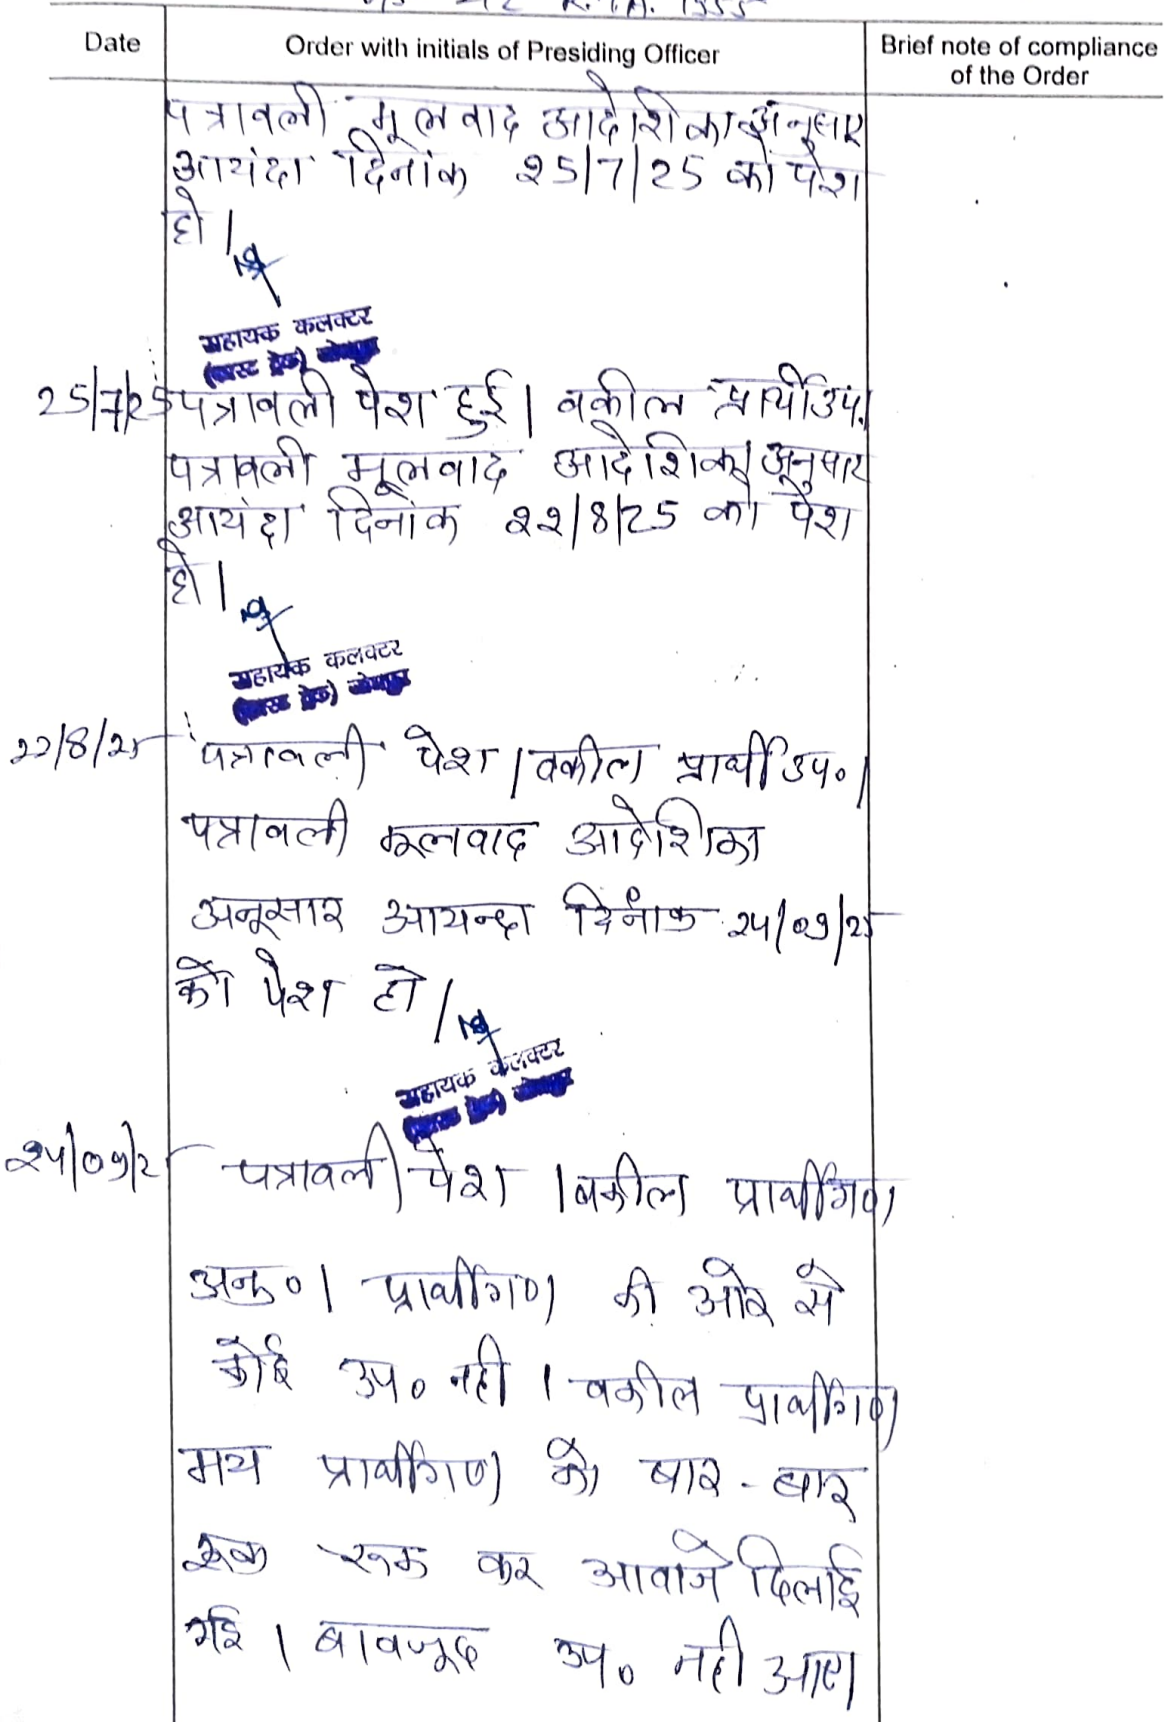 R.T.A. 1955
Date
Order with initials of Presiding Officer
Brief note of compliance
of the Order
पत्रावली मूलवाद आदेशिका अनुसार
आयंदा दिनांक २5/7/25 को पेश
हो।
सहायक कलक्टर
25/7/25 पत्रावली पेश हुई। वकील प्रार्थी उप.।
पत्रावली मूलवाद आदेशिका अनुसार
आयंदा दिनांक २२/8/25 को पेश
हो।
सहायक कलक्टर
22/8/25 पत्रावली पेश। वकील प्रार्थी उप०।
पत्रावली मूलवाद आदेशिका
अनूसार आयन्दा दिनांक २५/०९/25
को पेश हो।
सहायक कलक्टर
२५/०९/2 पत्रावली पेश । वकील प्रार्थीगण
अनु०। प्रार्थीगण की ओर से
कोई उप० नही । वकील प्रार्थीगण
मय प्रार्थीगण को बार-बार
रूक रूक कर आवाजे दिलाई
गई । बावजूद उप० नही आए।